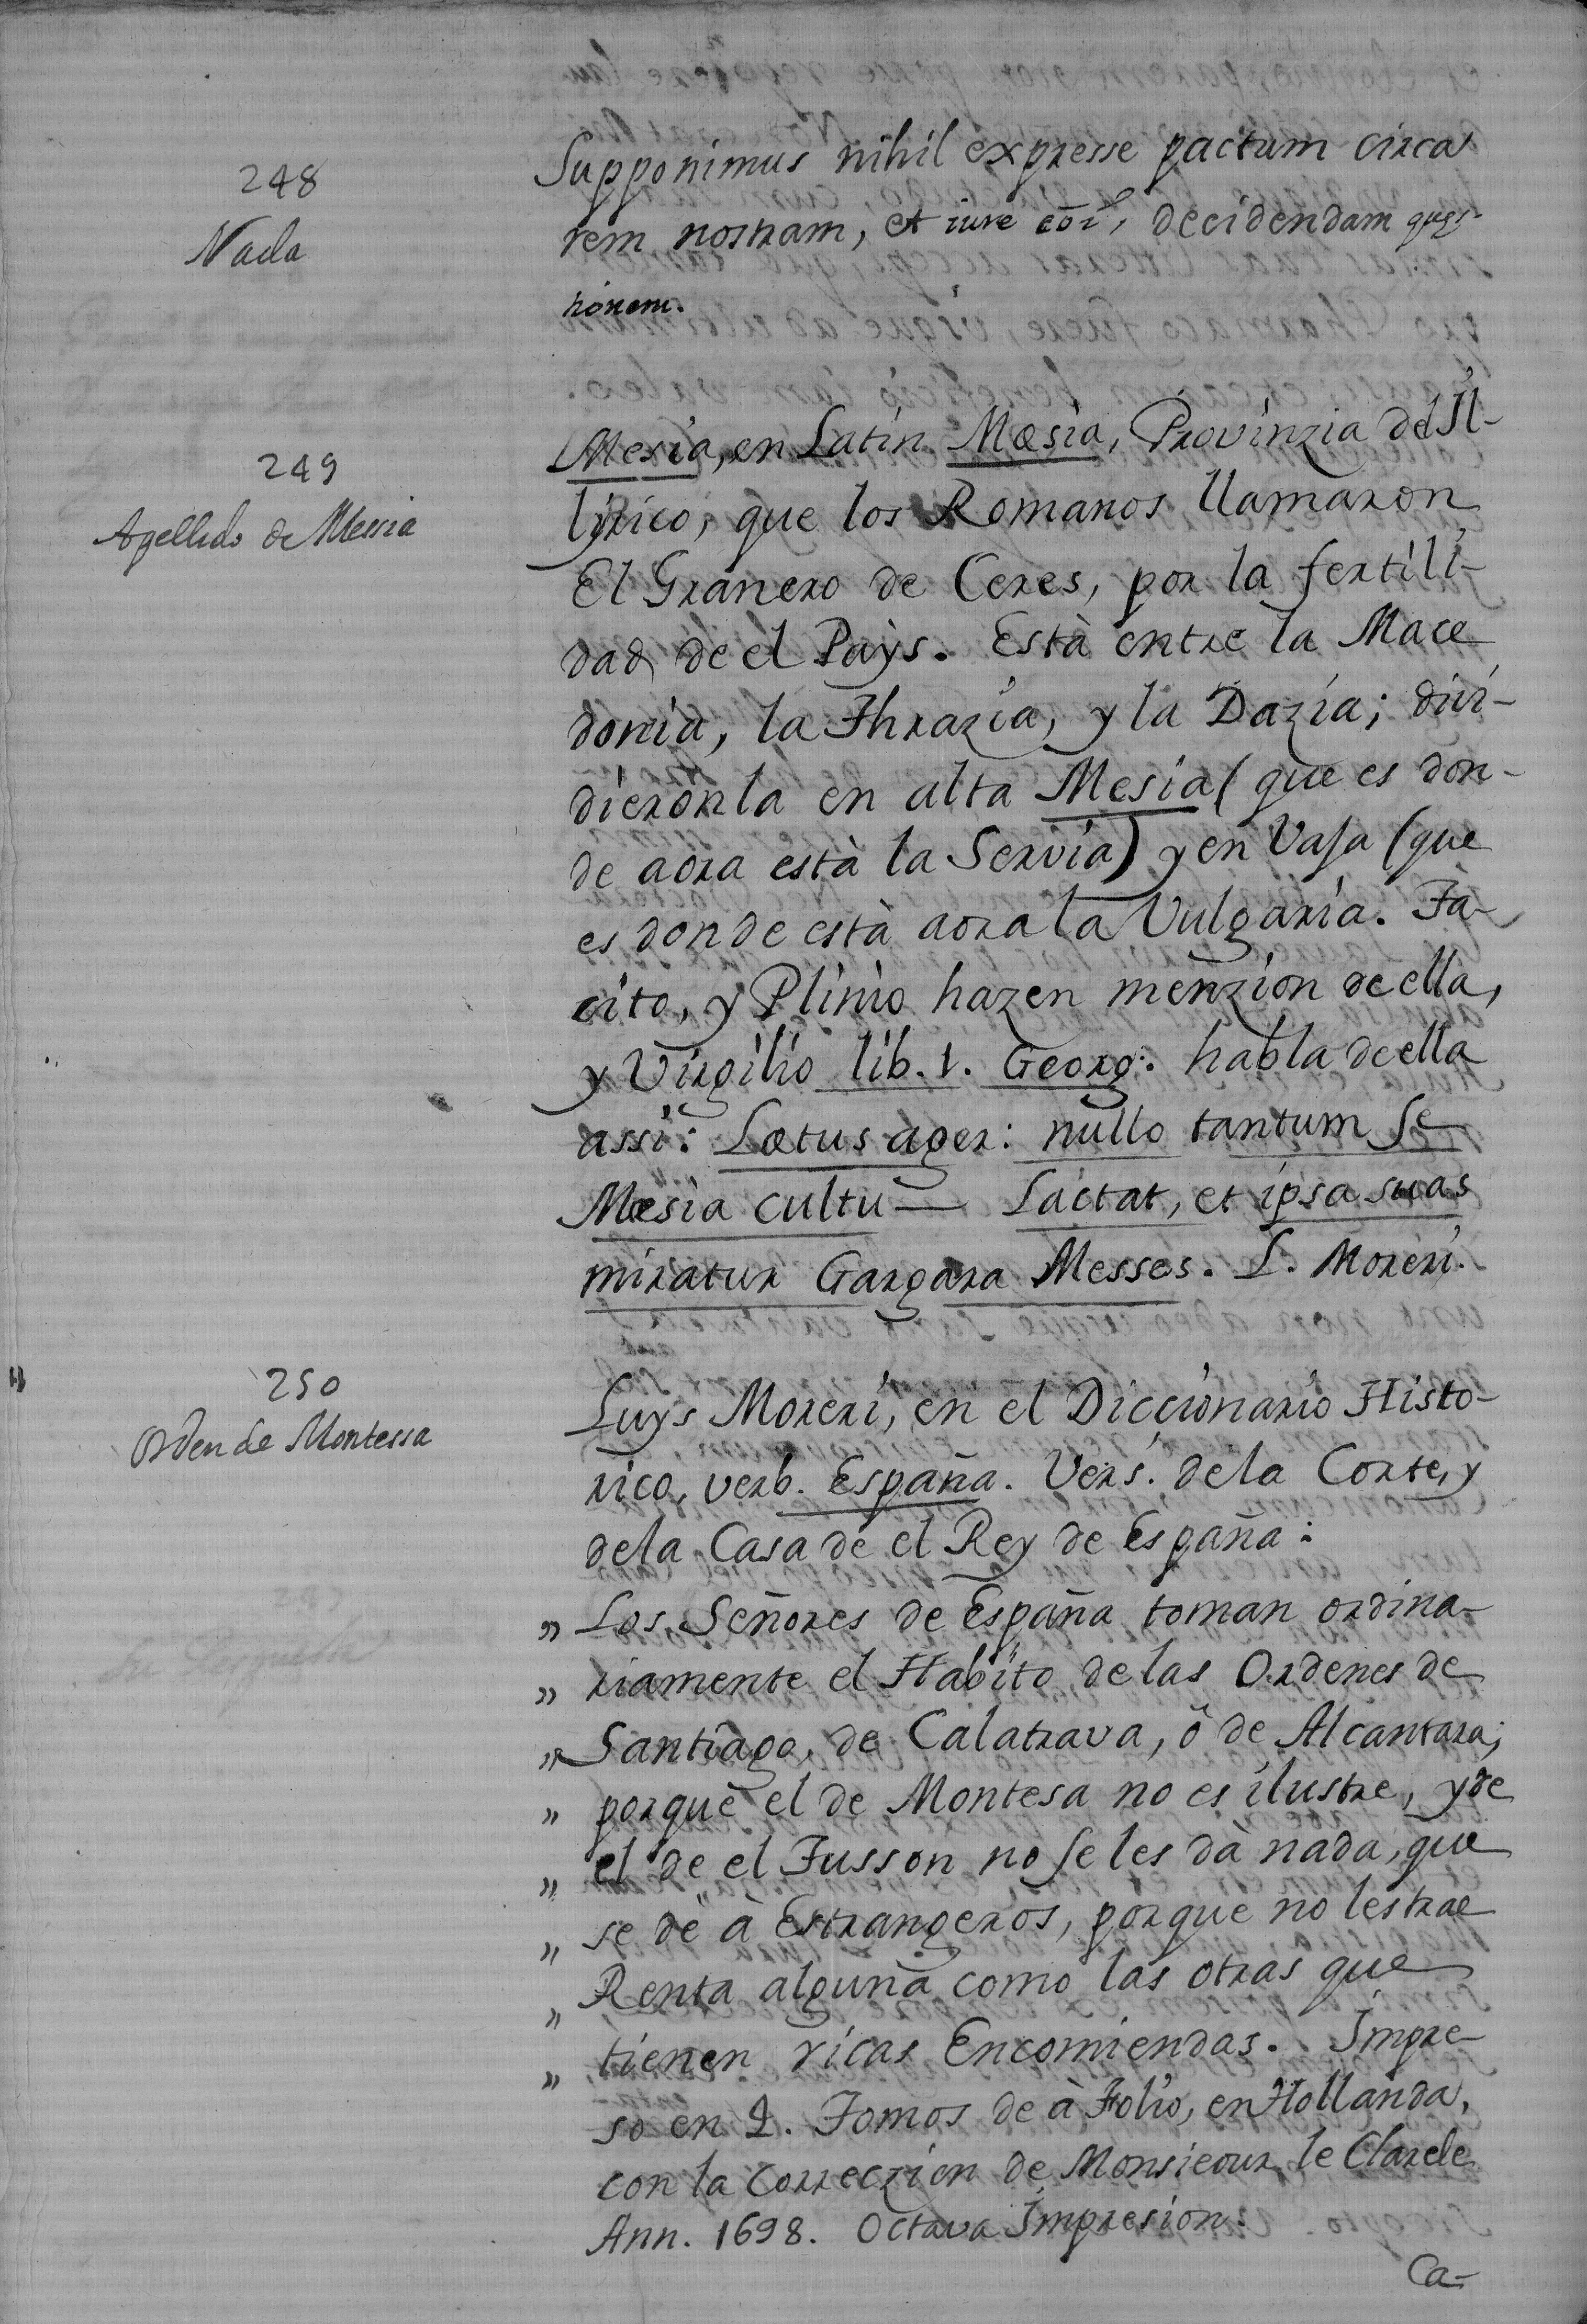 248
Nada
Supponimus nihil expresse pactum circa
rem nostram, et iure cōi, decidendam quęs-
tionem.
249
Apellido de Messia
Mesia, en Latin Mœsia, Provinzia del Il-
lyrico, que los Romanos llamaron
El Granero de Ceres, por la fertili-
dad de el Pays. Està entre la Mace
donia, la Thrazia, y la Dazia; divi-
dieronla en alta Mesia (que es don-
de aora està la Servia) y en Vaja (que
es donde està aora la Vulgaria. Ta-
cito, y Plinio hazen menzion de ella,
y Virgilio lib. 1. Georg: habla de ella
assi: Lœtus ager: nullo tantum se
Mœsia cultu — Lactat, et ipsa suas
miratur Gargara Messes. L. Moreri.
250
Orden de Montessa
Luys Moreri, en el Diccionario Histo-
rico, verb. España. Vers. de la Corte, y
de la Casa de el Rey de España:
„ Los Señores de España toman ordina-
„ riamente el Habito de las Ordenes de
„ Santiago, de Calatrava, ò de Alcantara;
„ porque el de Montesa no es ilustre, y de
„ el de el Tusson no se les dà nada, que
„ se dè à Estrangeros, porque no les trae
„ Renta alguna como las otras que
„ tienen ricas Encomiendas. Impre-
so en 2. Tomos de à Folio, en Hollanda,
con la correczion de Monsieour le Clarele
Ann. 1698. Octava Impresion.
Ca-